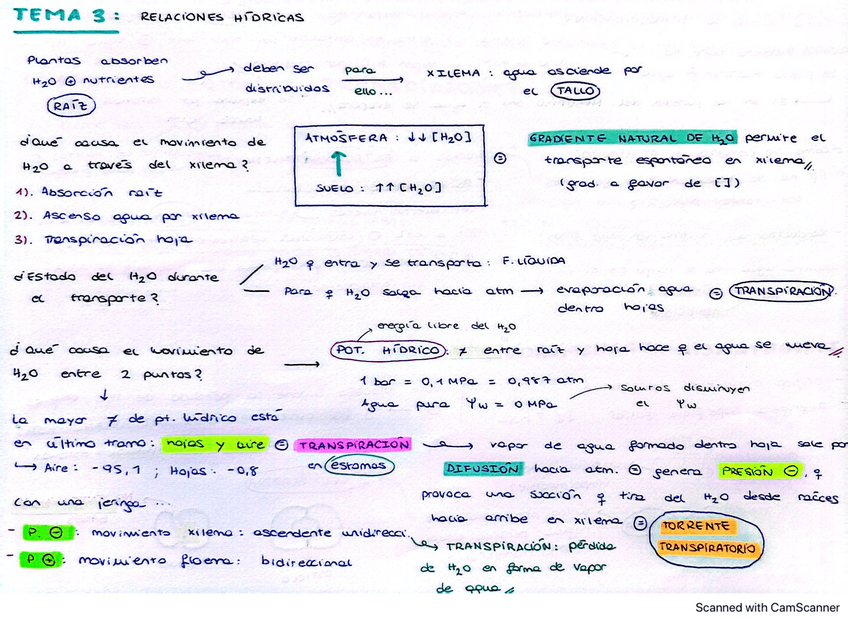 TEMA 3: RELACIONES HÍDRICAS
Plantas absorben
H₂O ⊕ nutrientes
RAÍZ
deben ser
distribuidos
para
ello...
XILEMA: agua asciende por
el TALLO
¿Qué causa el movimiento de
H₂O a través del xilema?
1). Absorción raíz
2). Ascenso agua por xilema
3). Transpiración hoja
ATMÓSFERA: ↓↓ [H₂O]
↑
SUELO: ↑↑ [H₂O]
⊜ GRADIENTE NATURAL DE H₂O permite el
transporte espontáneo en xilema//
(grad a favor de [])
¿Estado del H₂O durante
el transporte?
H₂O q entra y se transporta: F. LÍQUIDA
Para q H₂O salga hacia atm → evaporación agua ⊜ TRANSPIRACIÓN.
dentro hojas
¿Qué causa el movimiento de
H₂O entre 2 puntos?
energía libre del H₂O
POT. HÍDRICO: ≠ entre raíz y hoja hace q el agua se mueva//
1 bar = 0,1 MPa = 0,987 atm
Agua pura Ψw = 0 MPa → solutos disminuyen
el Ψw
↓
La mayor ≠ de pt. hídrico está
en último tramo: hojas y aire ⊜ TRANSPIRACIÓN
en estomas
↳ Aire: -95,1 ; Hojas: -0,8
vapor de agua formado dentro hoja sale por
DIFUSIÓN hacia atm. ⊜ genera PRESIÓN ⊖, q
provoca una succión q tira del H₂O desde raíces
hacia arriba en xilema ⊜ TORRENTE
TRANSPIRATORIO
Con una jeringa...
- P. ⊖: movimiento xilema: ascendente unidirecci.
- P ⊕: movimiento floema: bidireccional
↳ TRANSPIRACIÓN: pérdida
de H₂O en forma de vapor
de agua//
Scanned with CamScanner